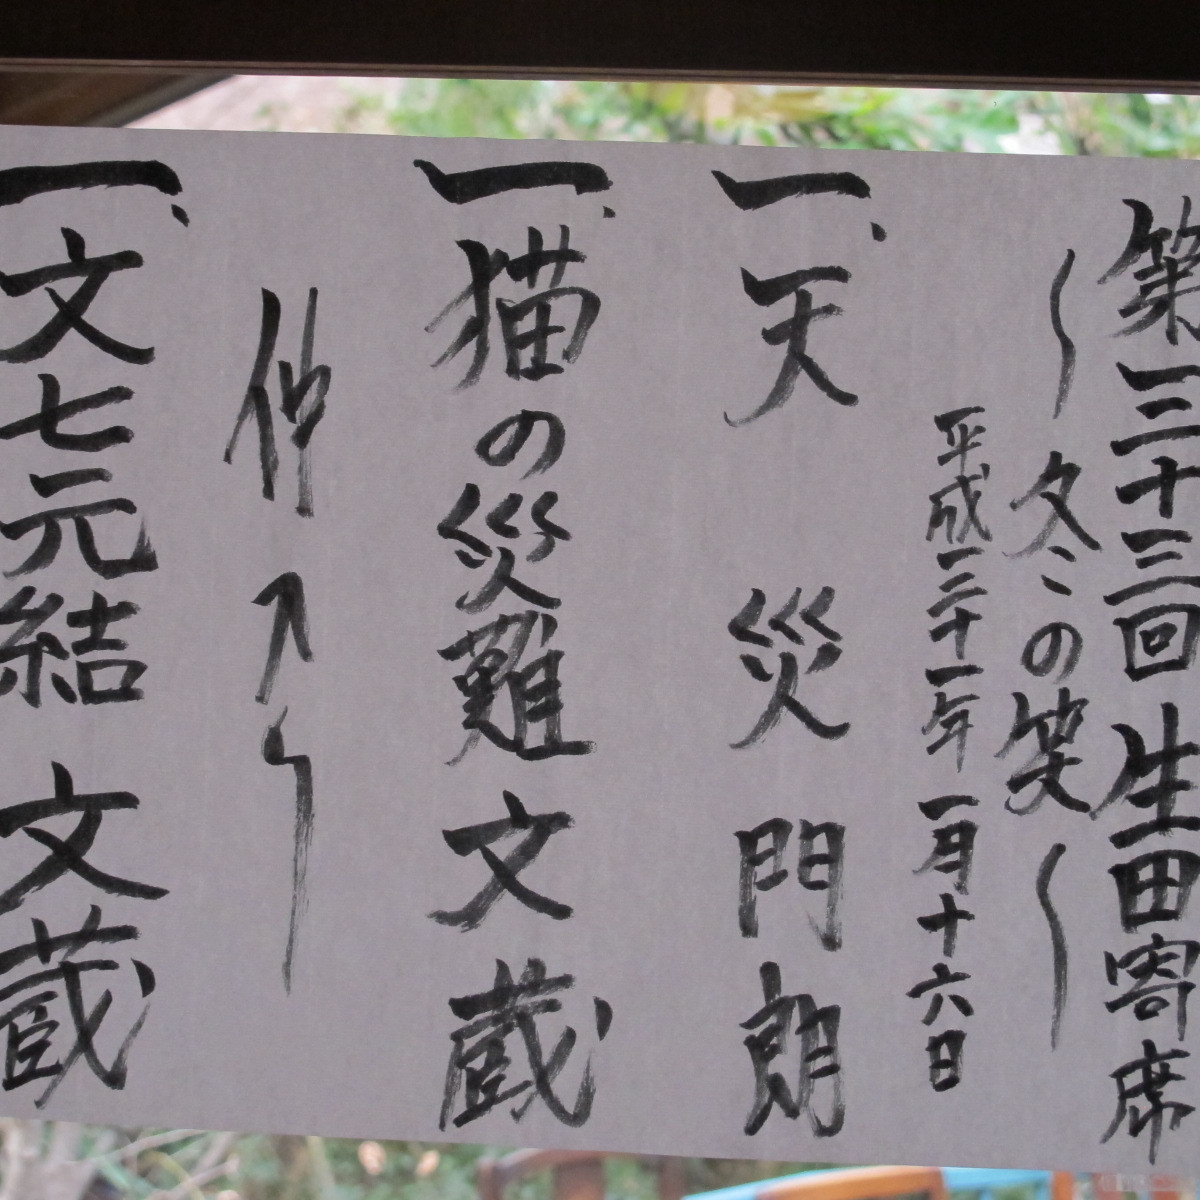 第三十三回 生田寄席
〜冬の笑〜
平成二十一年 一月十六日
一、天災 門朗
一、猫の災難 文蔵
仲入り
一、文七元結 文蔵